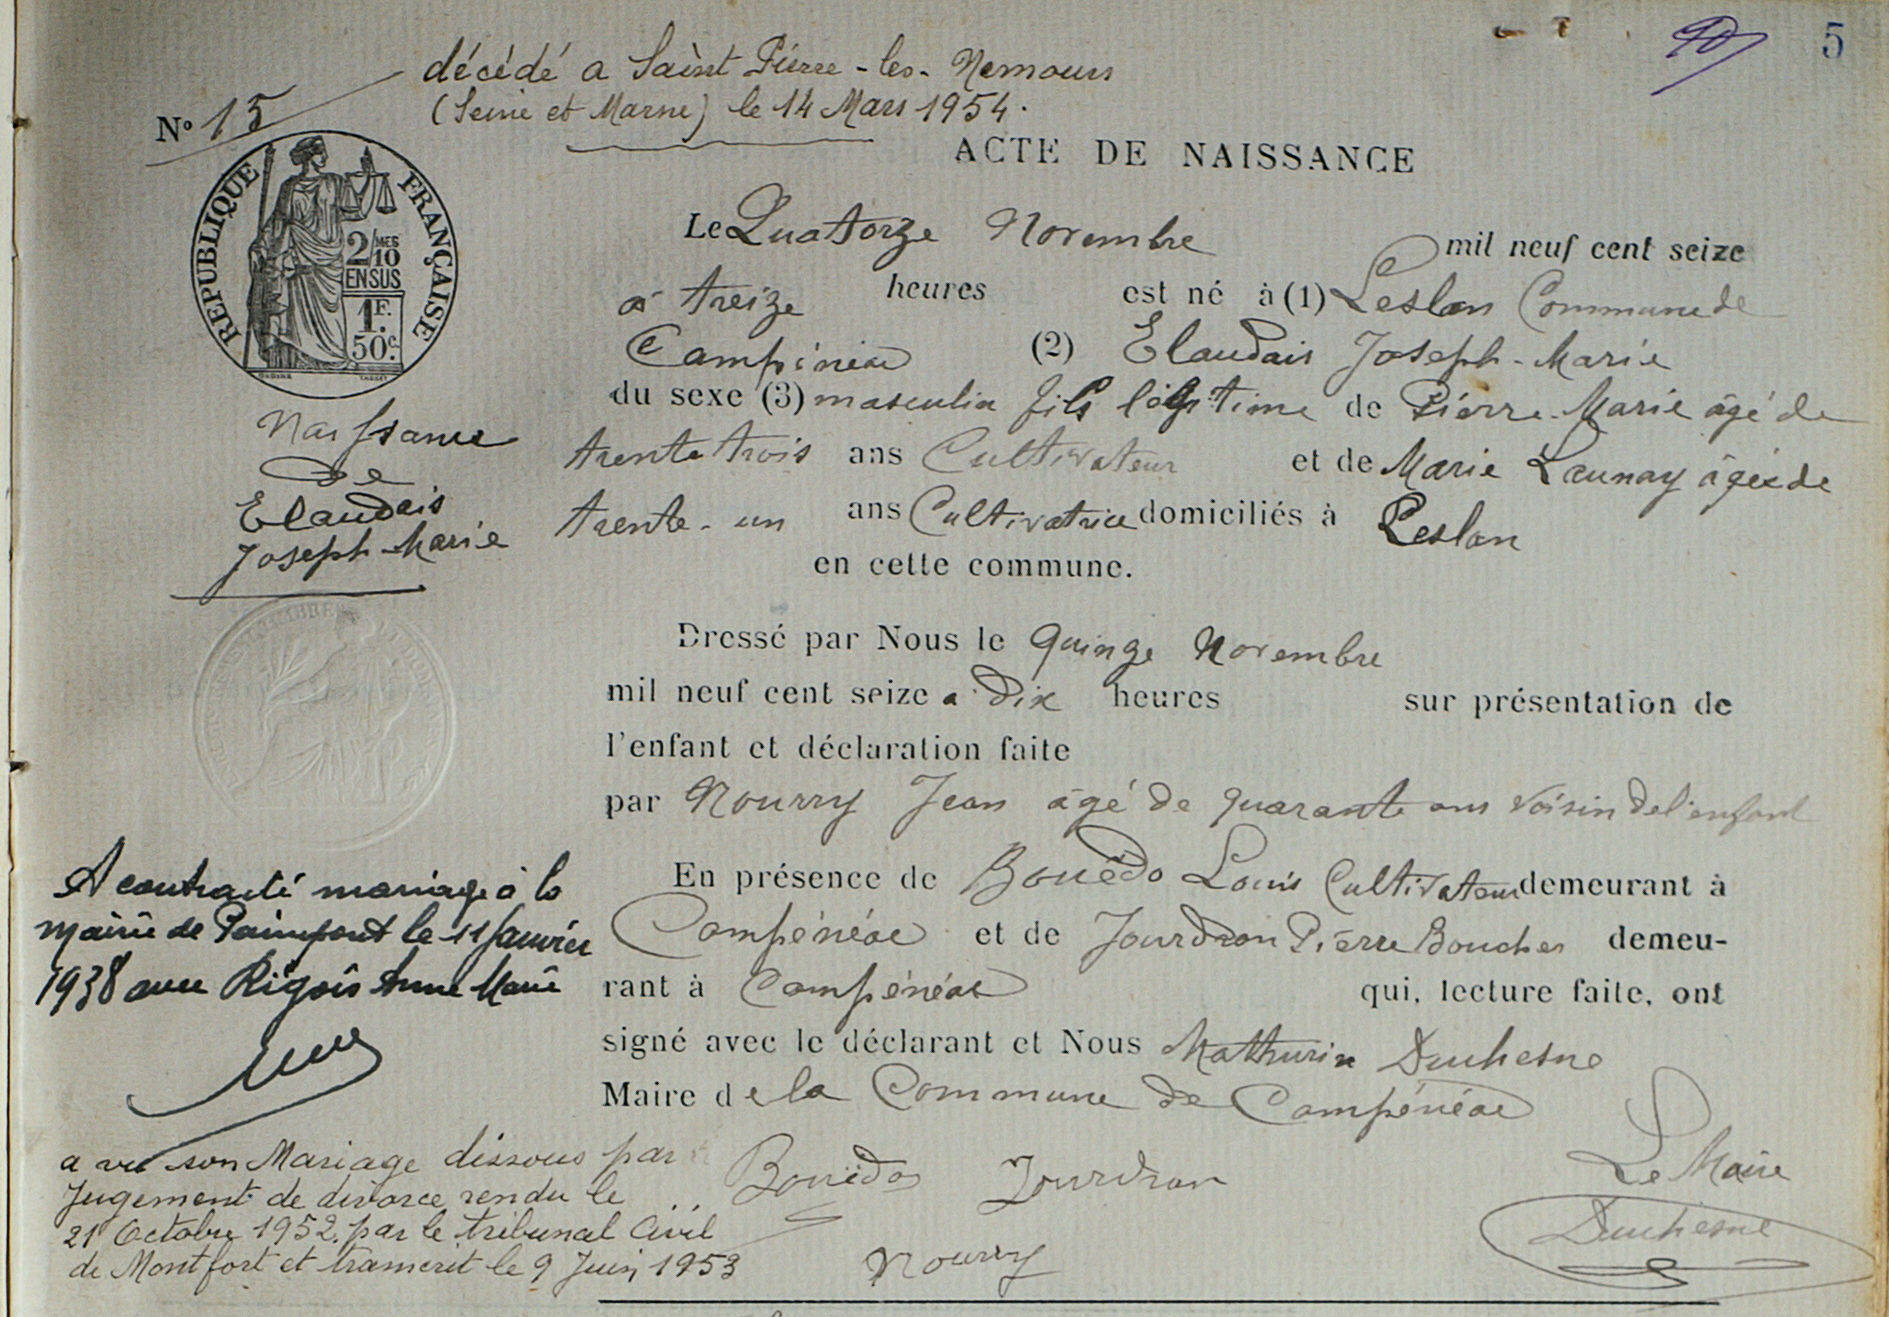 5
décédé a Saint Pierre-les-Nemours
(Seine et Marne) le 14 Mars 1954.
N° 15
REPUBLIQUE FRANÇAISE
2/10 MES
EN SUS
1F.
50c.
ACTE DE NAISSANCE
Le Quatorze Novembre mil neuf cent seize
à treize heures est né à (1) Leslan Commune de
Campénéac (2) Elaudais Joseph-Marie
du sexe (3) masculin fils légitime de Pierre-Marie âgé de
trente trois ans Cultivateur et de Marie Launay âgée de
trente-un ans Cultivatrice domiciliés à Leslan
en cette commune.
Naissance
de
Elaudais
Joseph-Marie
Dressé par Nous le quinze Novembre
mil neuf cent seize a dix heures sur présentation de
l'enfant et déclaration faite
par Nourry Jean âgé de quarante ans voisin de l'enfant
En présence de Bouëdo Louis Cultivateur demeurant à
Campénéac et de Jourdran Pierre Boucher demeu-
rant à Campénéac qui, lecture faite, ont
signé avec le déclarant et Nous Mathurin Duchesne
Maire de la Commune de Campénéac
A contracté mariage à la
mairie de Paimpont le 11 Janvier
1938 avec Rigois Anne Marie
a vu son Mariage dissous par
Jugement de divorce rendu le
21 Octobre 1952. par le tribunal Civil
de Montfort et transcrit le 9 Juin 1953
Bouëdo Jourdran Le Maire
Nourry Duchesne